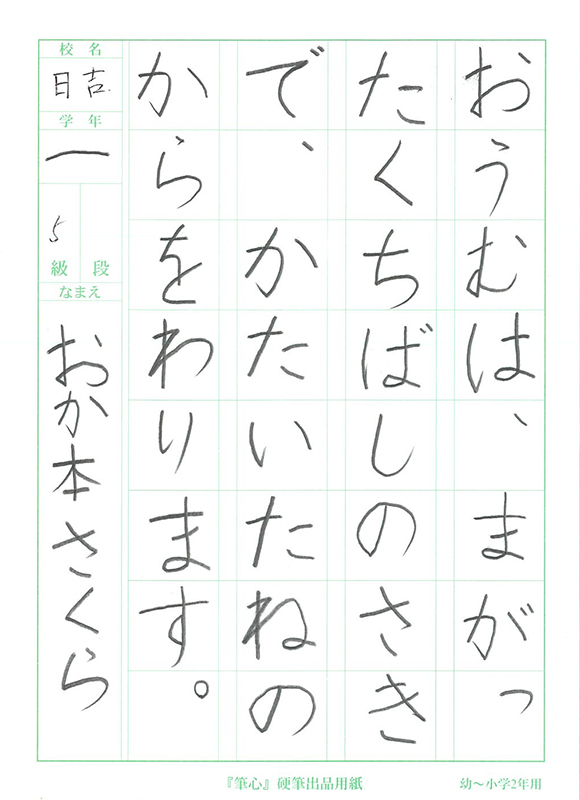 おうむは、まがっ
たくちばしのさき
で、かたいたねの
からをわります。
校名
日吉
学年
一
5
級段
なまえ
おか本さくら
『筆心』硬筆出品用紙
幼～小学2年用